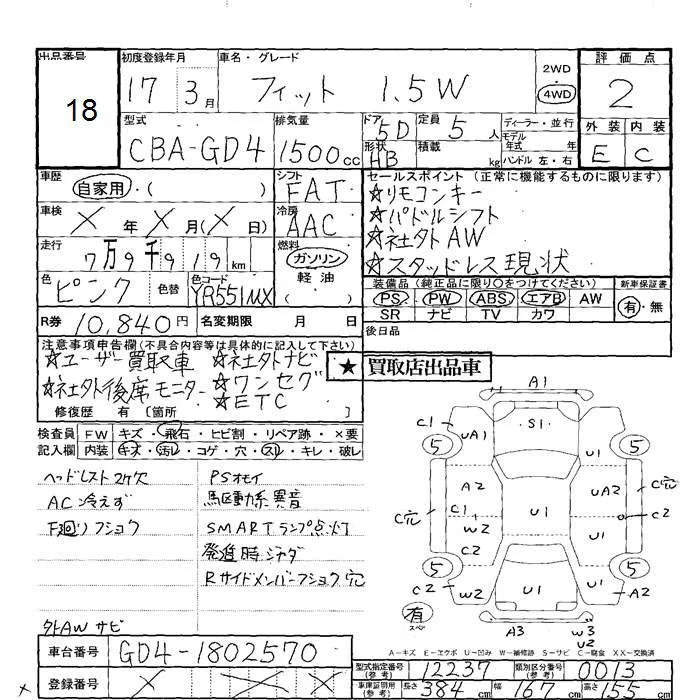 出品番号 初度登録年月 車名・グレード 2WD 評価点
18 17 3月 フィット 1.5W 4WD 2
型式 排気量 ドア 定員 ディーラー・並行 外装 内装
CBA-GD4 1500cc 5D 5人 モデル年式 年
形状 HB 積載 kg ハンドル 左・右 E C
車歴 シフト セールスポイント (正常に機能するものに限ります)
自家用・( ) FAT ☆リモコンキー
車検 冷房 ☆パドルシフト
X年 X月(X日) AAC ☆社外AW
走行 燃料 ☆スタッドレス現状
7万9千919km ガソリン
軽油
( )
色 色替 色コード 装備品(純正品に限り○をつけてください) 新車保証書
ピンク YR551MX PS PW ABS エアB AW 有・無
SR ナビ TV カワ
R券 10,840円 名変期限 月 日 後日品
注意事項申告欄(不具合内容等は具体的に記入して下さい)
☆ユーザー買取車 ☆社外ナビ ★ 買取店出品車
☆社外後席モニター ☆ワンセグ
☆ETC
修復歴 有 〔箇所 〕
検査員 FW キズ・飛石・ヒビ割・リペア跡・×要
記入欄 内装 キズ・汚レ・コゲ・穴・スレ・キレ・破レ
ヘッドレスト2ケ欠 PSオモイ
AC冷えず 駆動系異音
F廻りフショク SMARTランプ点灯
発進時ジャダ
Rサイドメンバーフショク穴
外AWサビ
A1
C1 UA1 S1 U1
5 5
A2 UA2 C穴
C穴 C1 W2 U1 C2
C2 U1
5 5
C2 W2 U1 A2 C1
有 スペア
A3 W3
U2
A-キズ E-エクボ U-凹み W-補修跡 S-サビ C-腐食 XX-交換済
車台番号 GD4-1802570
型式指定番号(参考) 12237 類別区分番号(参考) 0013
登録番号 X X X
車庫証明用(参考) 長さ 384cm 幅 167cm 高さ 155cm